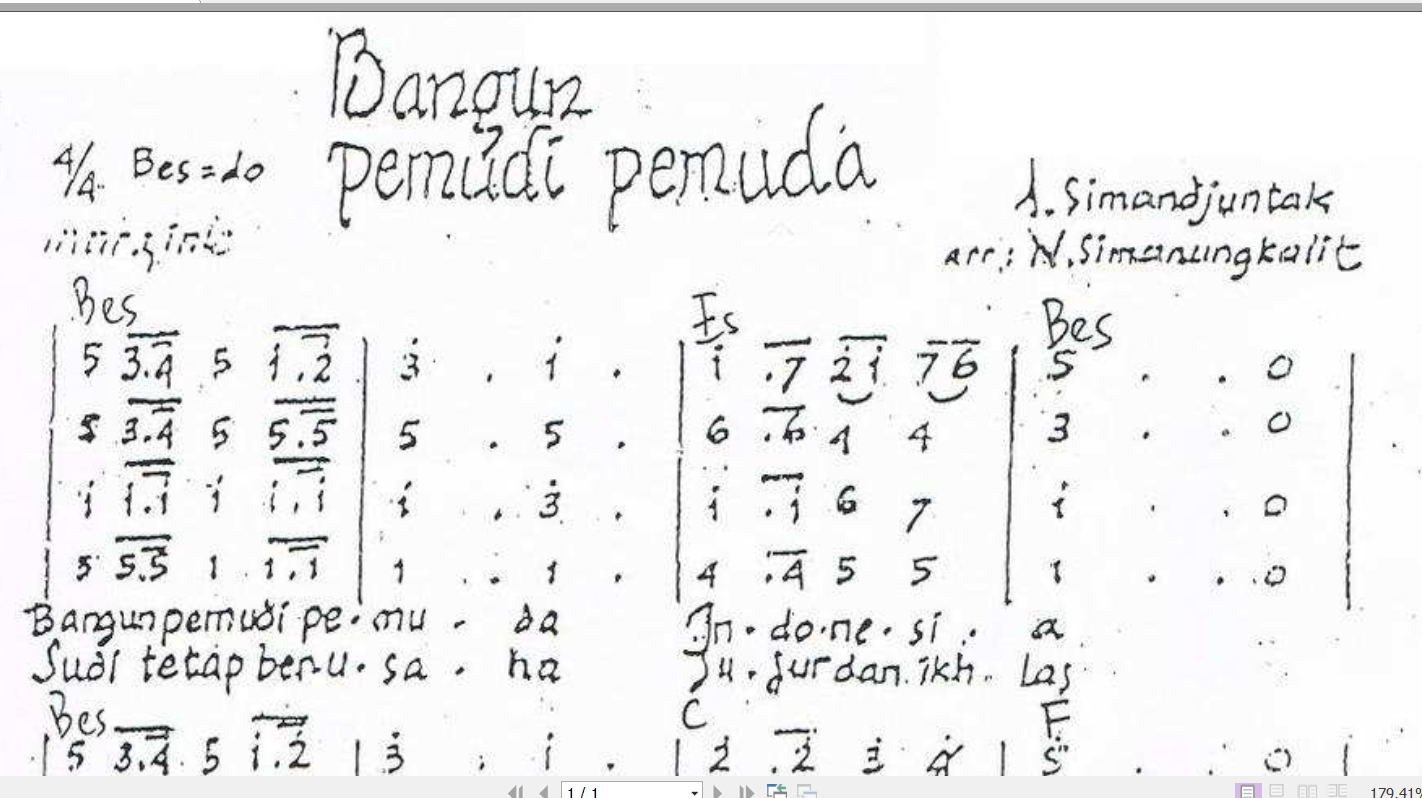 Bangun
pemudi pemuda
4/4 Bes = do
A. Simandjuntak
arr: N. Simanungkalit
Bes Es Bes
| 5 3.4 5 i.2̇ | 3̇ . i . | i .7 2̇i 76 | 5 . . 0 |
5 3.4 5 5.5 | 5 . 5 . | 6 .6 4 4 | 3 . . 0
i i.i i i.i | i . 3̇ . | i .i 6 7 | i . . 0
| 5 5.5 1 1.1 | 1 . 1 . | 4 .4 5 5 | 1 . . 0 |
Bangun pemudi pe.mu . da In.do.ne.si . a
Sudi tetap ber.u.sa . ha Ju.jur dan.ikh. las
Bes C F
| 5 3.4 5 i.2̇ | 3̇ . i . | 2̇ .2̇ 3̇ 4̇ | 5̇ . . 0 |
1 / 1
179.41%